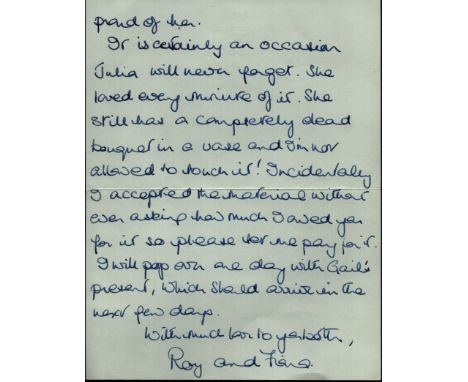 proud of her.
It is certainly an occasion
Julia will never forget. She
loved every minute of it. She
still has a completely dead
bouquet in a vase and I'm not
allowed to touch it! Incidentaly
I accepted the material without
even asking how much I owed you
for it so please let me pay for it.
I will pop over one day with Gail's
present, which should arrive in the
next few days.
With much love to you both,
Roy and Fiona.